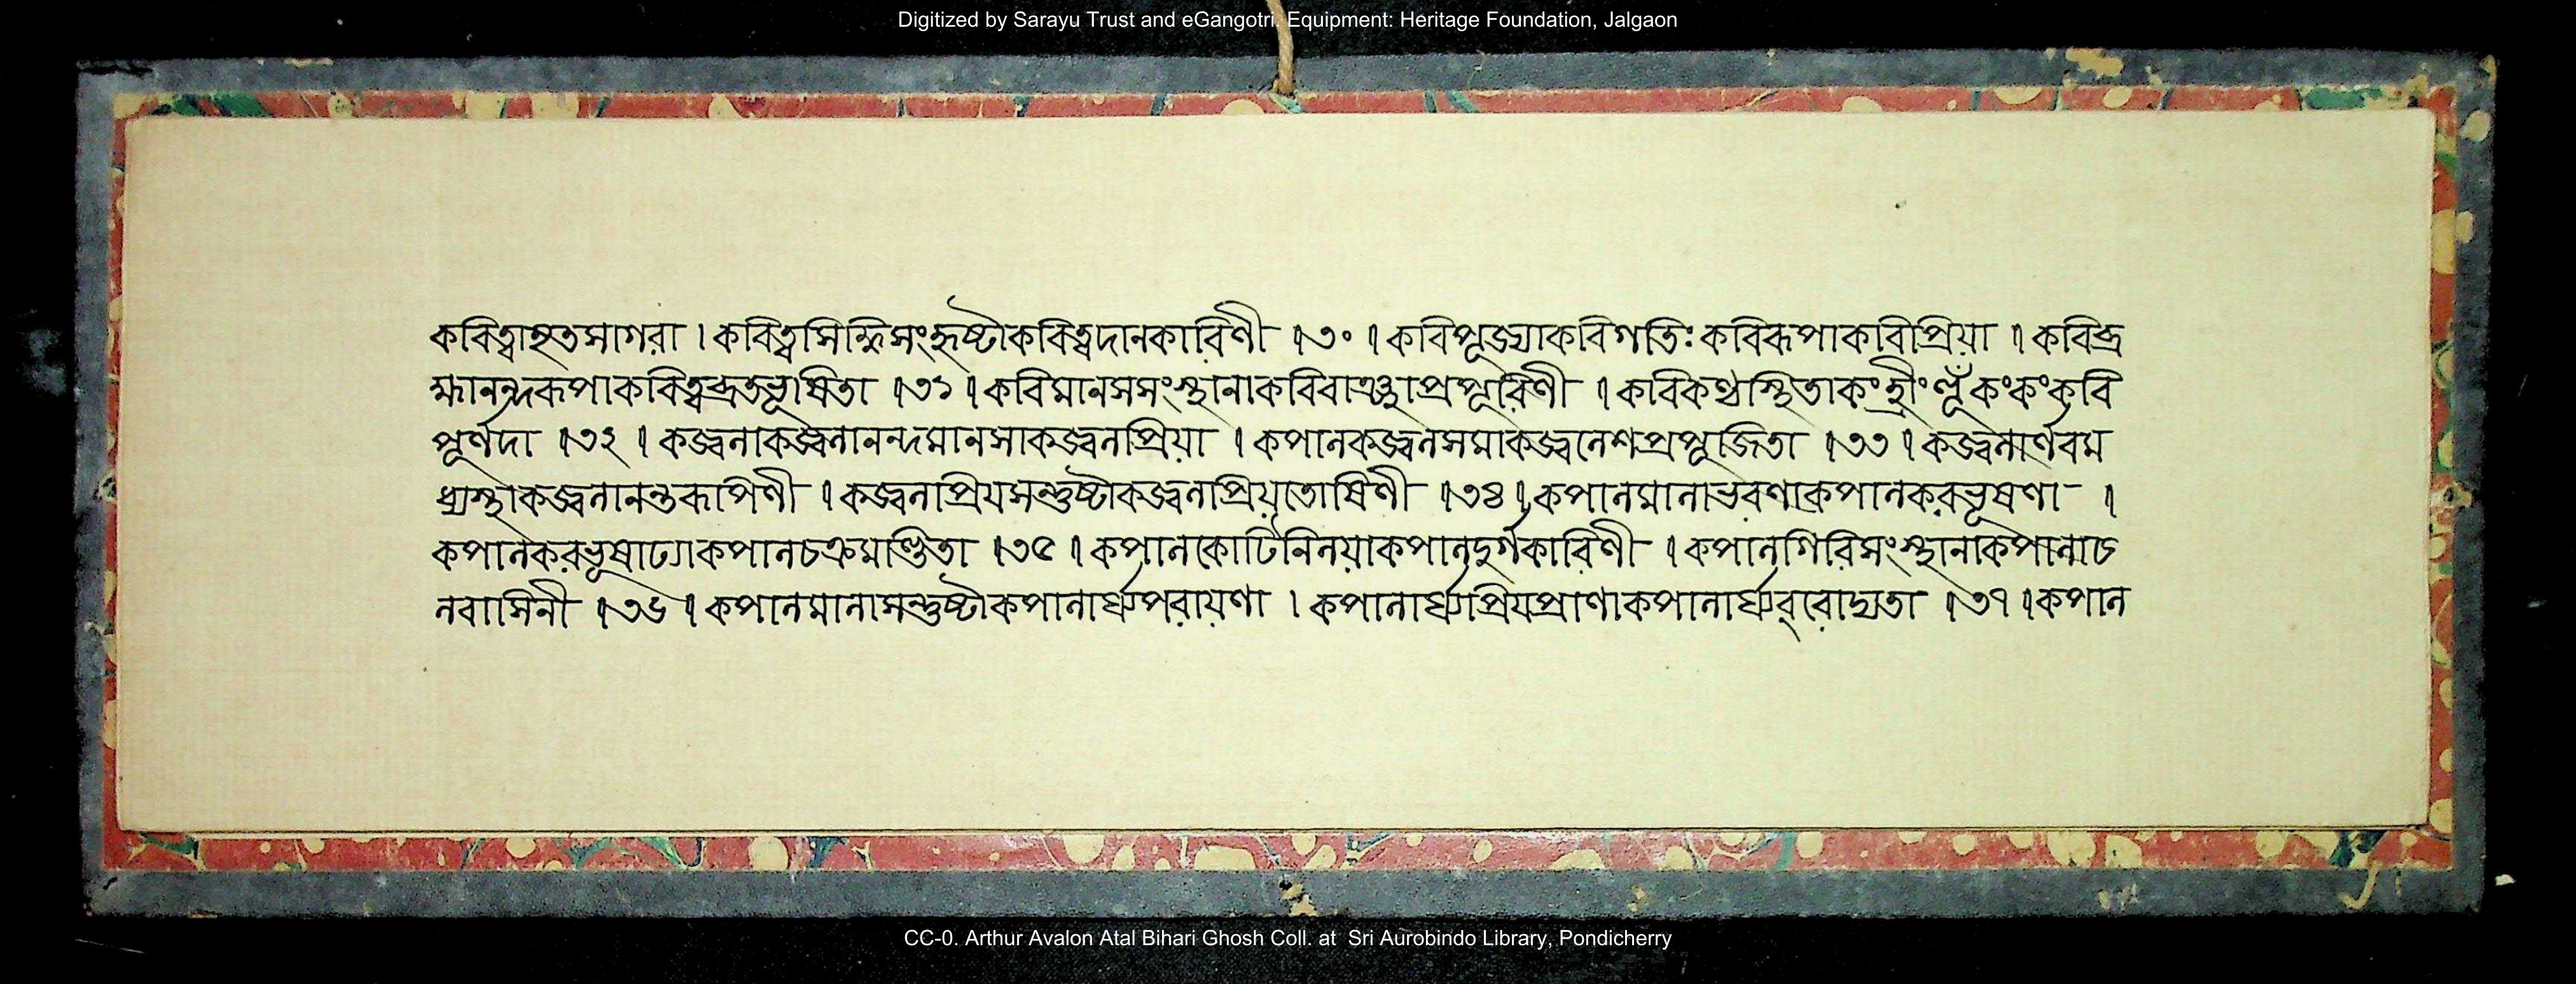 Digitized by Sarayu Trust and eGangotri. Equipment: Heritage Foundation, Jalgaon
কবিত্বাহৃতসাগরা । কবিত্বসিদ্ধিসংহৃষ্টাকবিত্বদানকারিণী ।৩০। কবিপূজ্যাকবিগতিঃকবিরূপাকবীপ্রিয়া । কবিব্র
হ্মানন্দরূপাকবিত্বব্রতভূষিতা ।৩১। কবিমানসসংস্থানাকবিবাঞ্ছাপ্রপূরিণী । কবিকণ্ঠস্থিতাকংহ্রীং কংকংকবি
পূর্ণদা ।৩২। কজ্জ্বলাকজ্জ্বলানন্দমানসাকজ্জ্বলপ্রিয়া । কপালকজ্জ্বলসমাকজ্জ্বলেশপ্রপূজিতা ।৩৩। কজ্জ্বলার্ণবম
ধ্যস্থাকজ্জ্বলানন্তরূপিণী । কজ্জ্বলাপ্রিয়সন্তুষ্টাকজ্জ্বলাপ্রিয়তোষিণী ।৩৪। কপালমালাভরণাকপালকরভূষণা ।
কপালকরভূষাঢ্যাকপালচক্রমণ্ডিতা ।৩৫। কপালকোটিনিলয়াকপালদুর্গকারিণী । কপালগিরিসংস্থানাকপালাচ
লবাসিনী ।৩৬। কপালমালাসন্তুষ্টাকপালার্ঘ্যপরায়ণা । কপালার্ঘ্যপ্রিয়প্রাণাকপালার্ঘ্যবরোদ্যতা ।৩৭। কপাল
CC-0. Arthur Avalon Atal Bihari Ghosh Coll. at Sri Aurobindo Library, Pondicherry